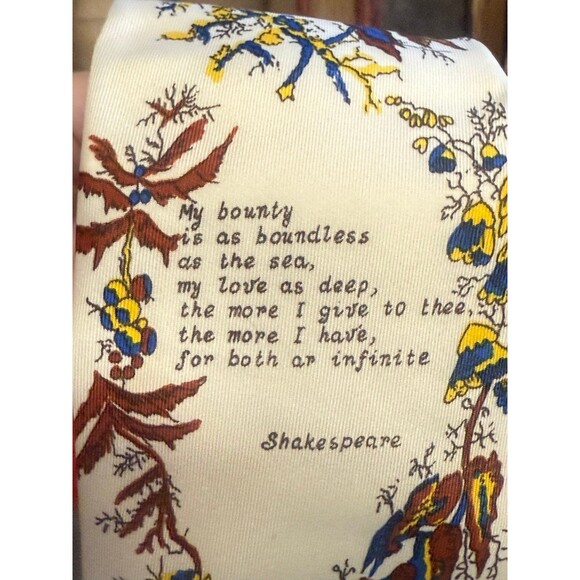 My bounty
is as boundless
as the sea,
my love as deep,
the more I give to thee,
the more I have,
for both ar infinite
Shakespeare